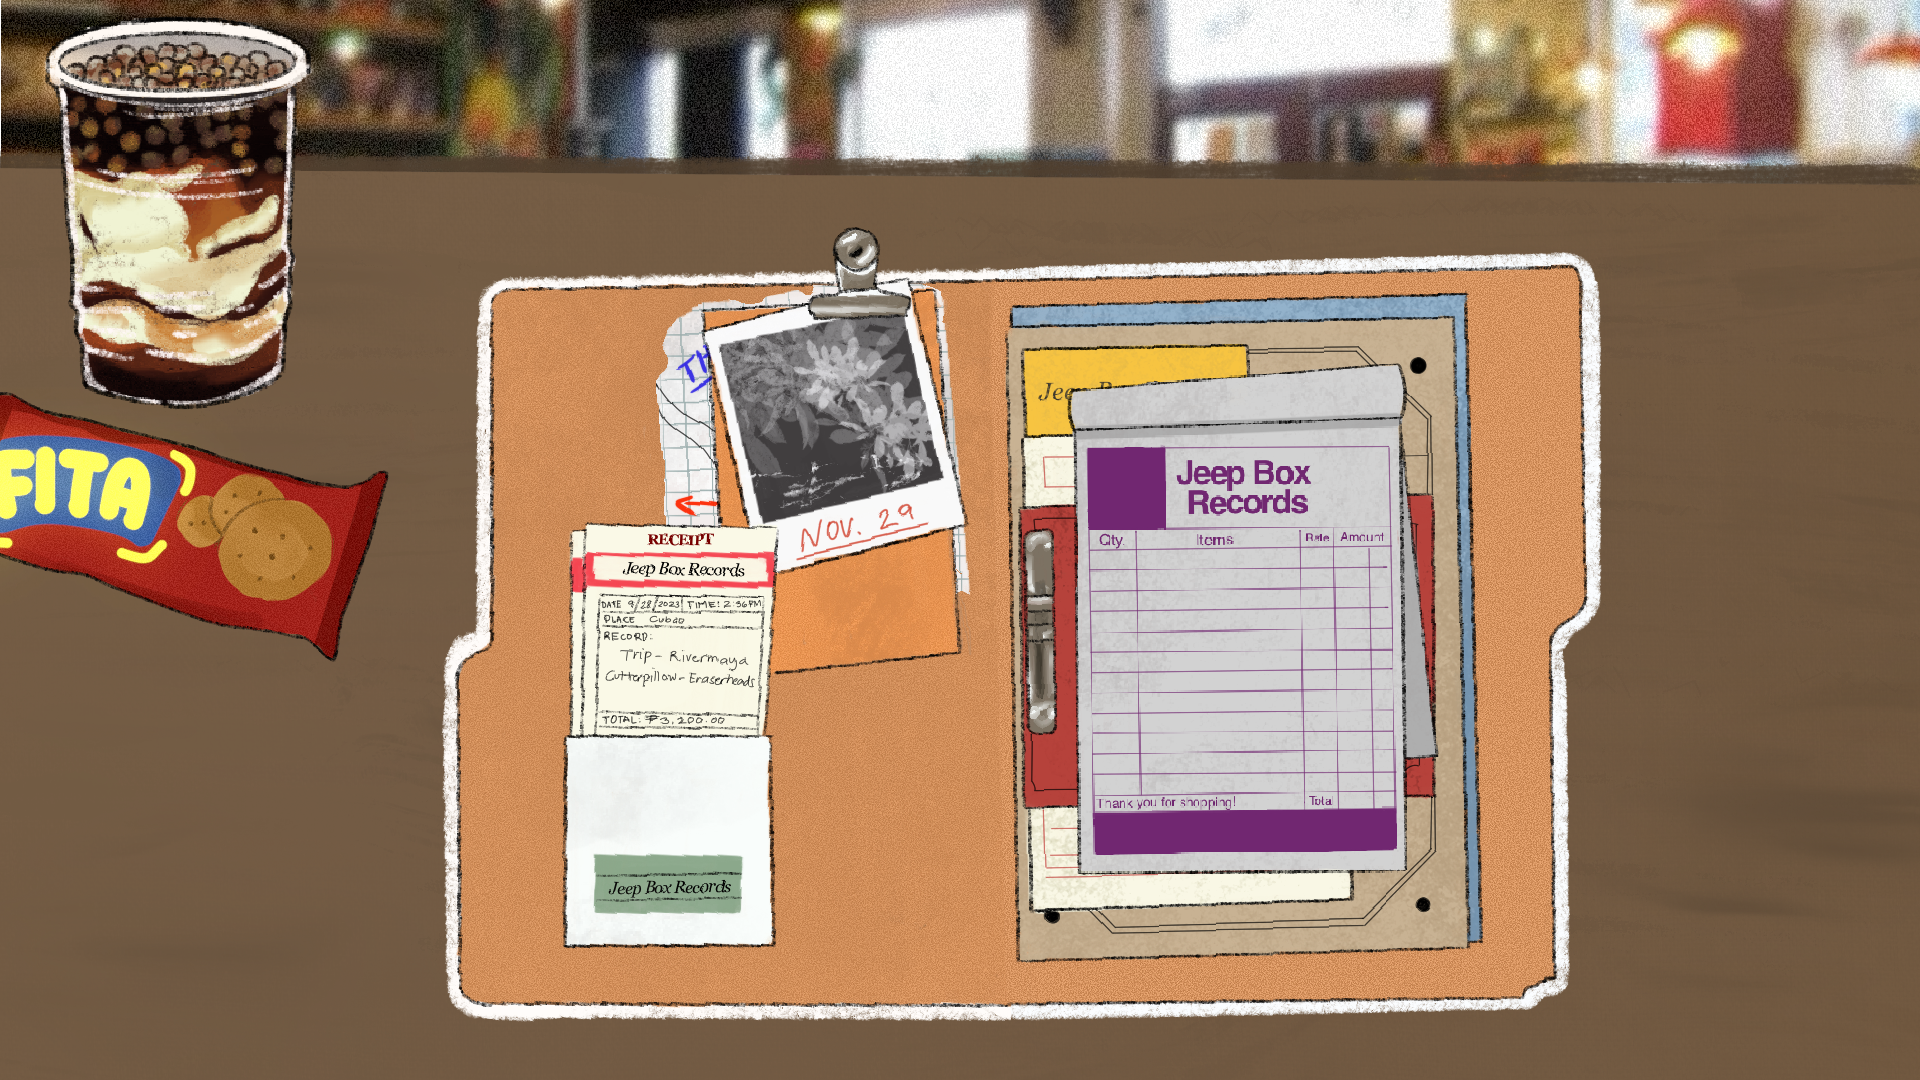 FITA
NOV. 29
RECEIPT
Jeep Box Records
DATE 9/28/2023 TIME: 2:36PM
PLACE Cubao
RECORD:
Trip - Rivermaya
Cutterpillow - Eraserheads
TOTAL: ₱3,200.00
Jeep Box Records
Jeep Box
Records
Qty. Items Rate Amount
Thank you for shopping! Total